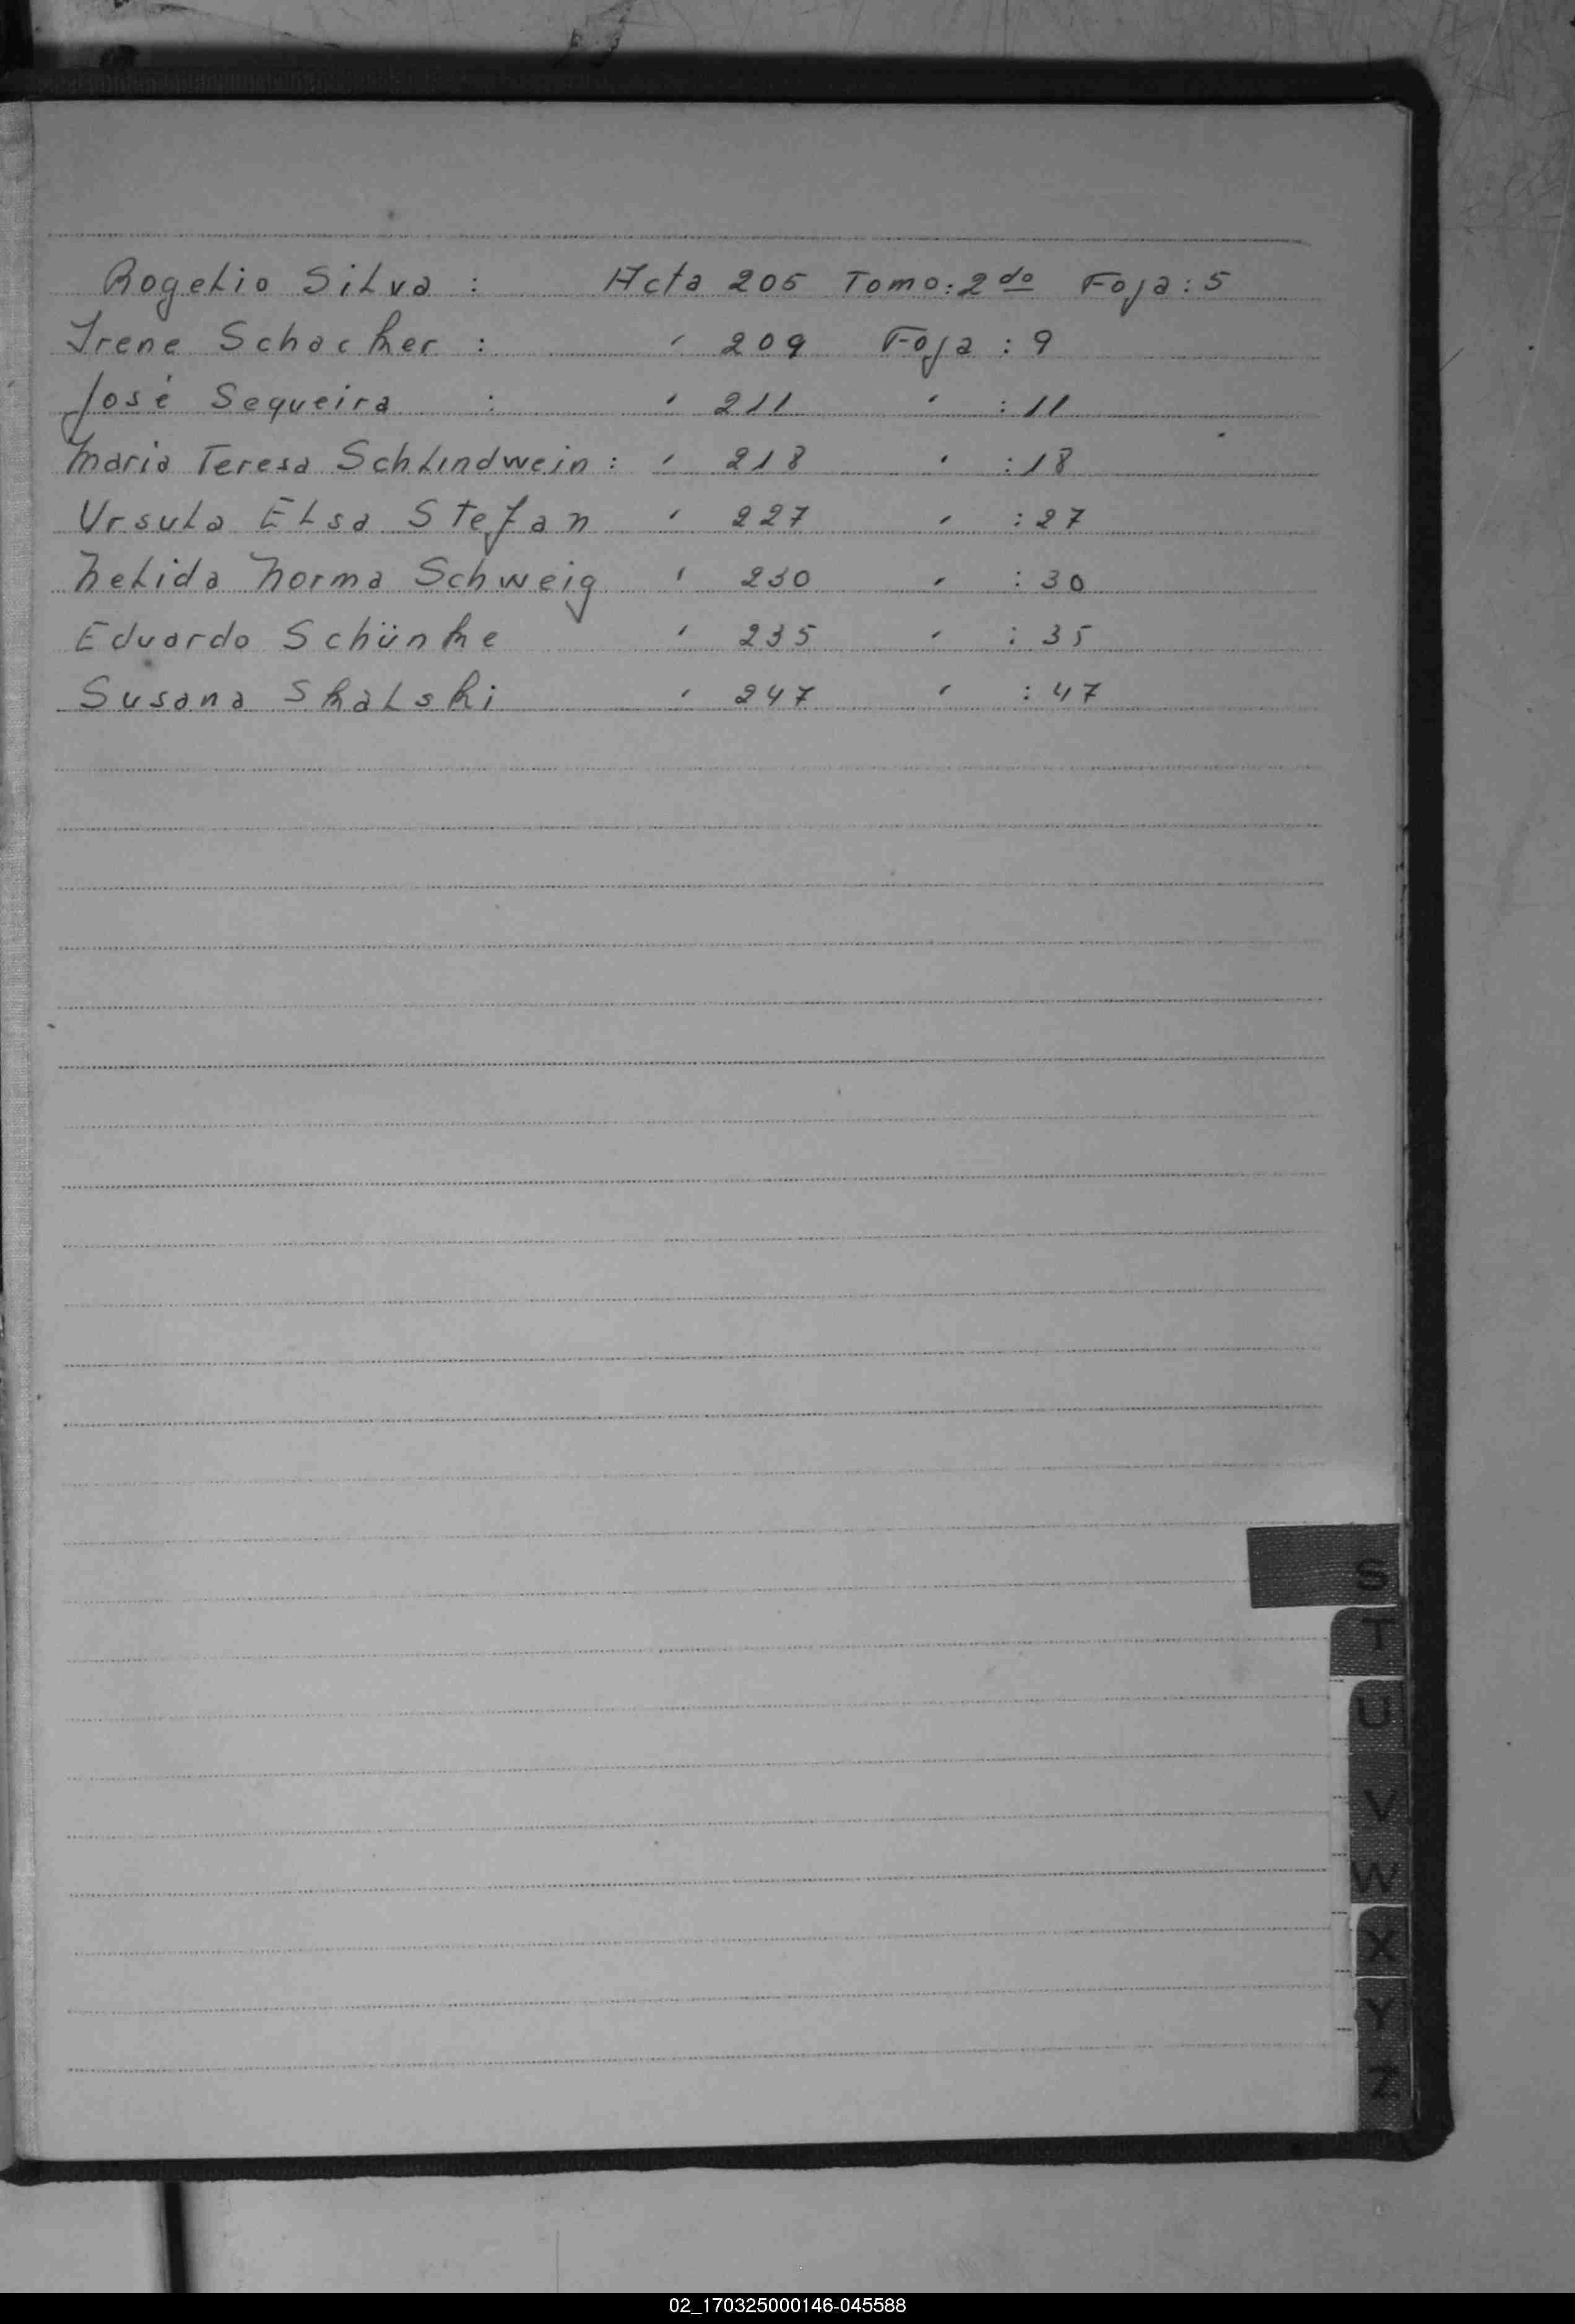 Rogelio Silva : Acta 205 Tomo: 2do Foja: 5
Irene Schacker : ' 209 Foja : 9
José Sequeira : ' 211 ' : 11
Maria Teresa Schlindwein : ' 218 ' : 18
Ursula Elsa Stefan ' 227 ' : 27
Nelida Norma Schweig ' 230 ' : 30
Eduardo Schünke ' 235 ' : 35
Susana Skalski ' 247 ' : 47
S
T
U
V
W
X
Y
Z
02_170325000146-045588